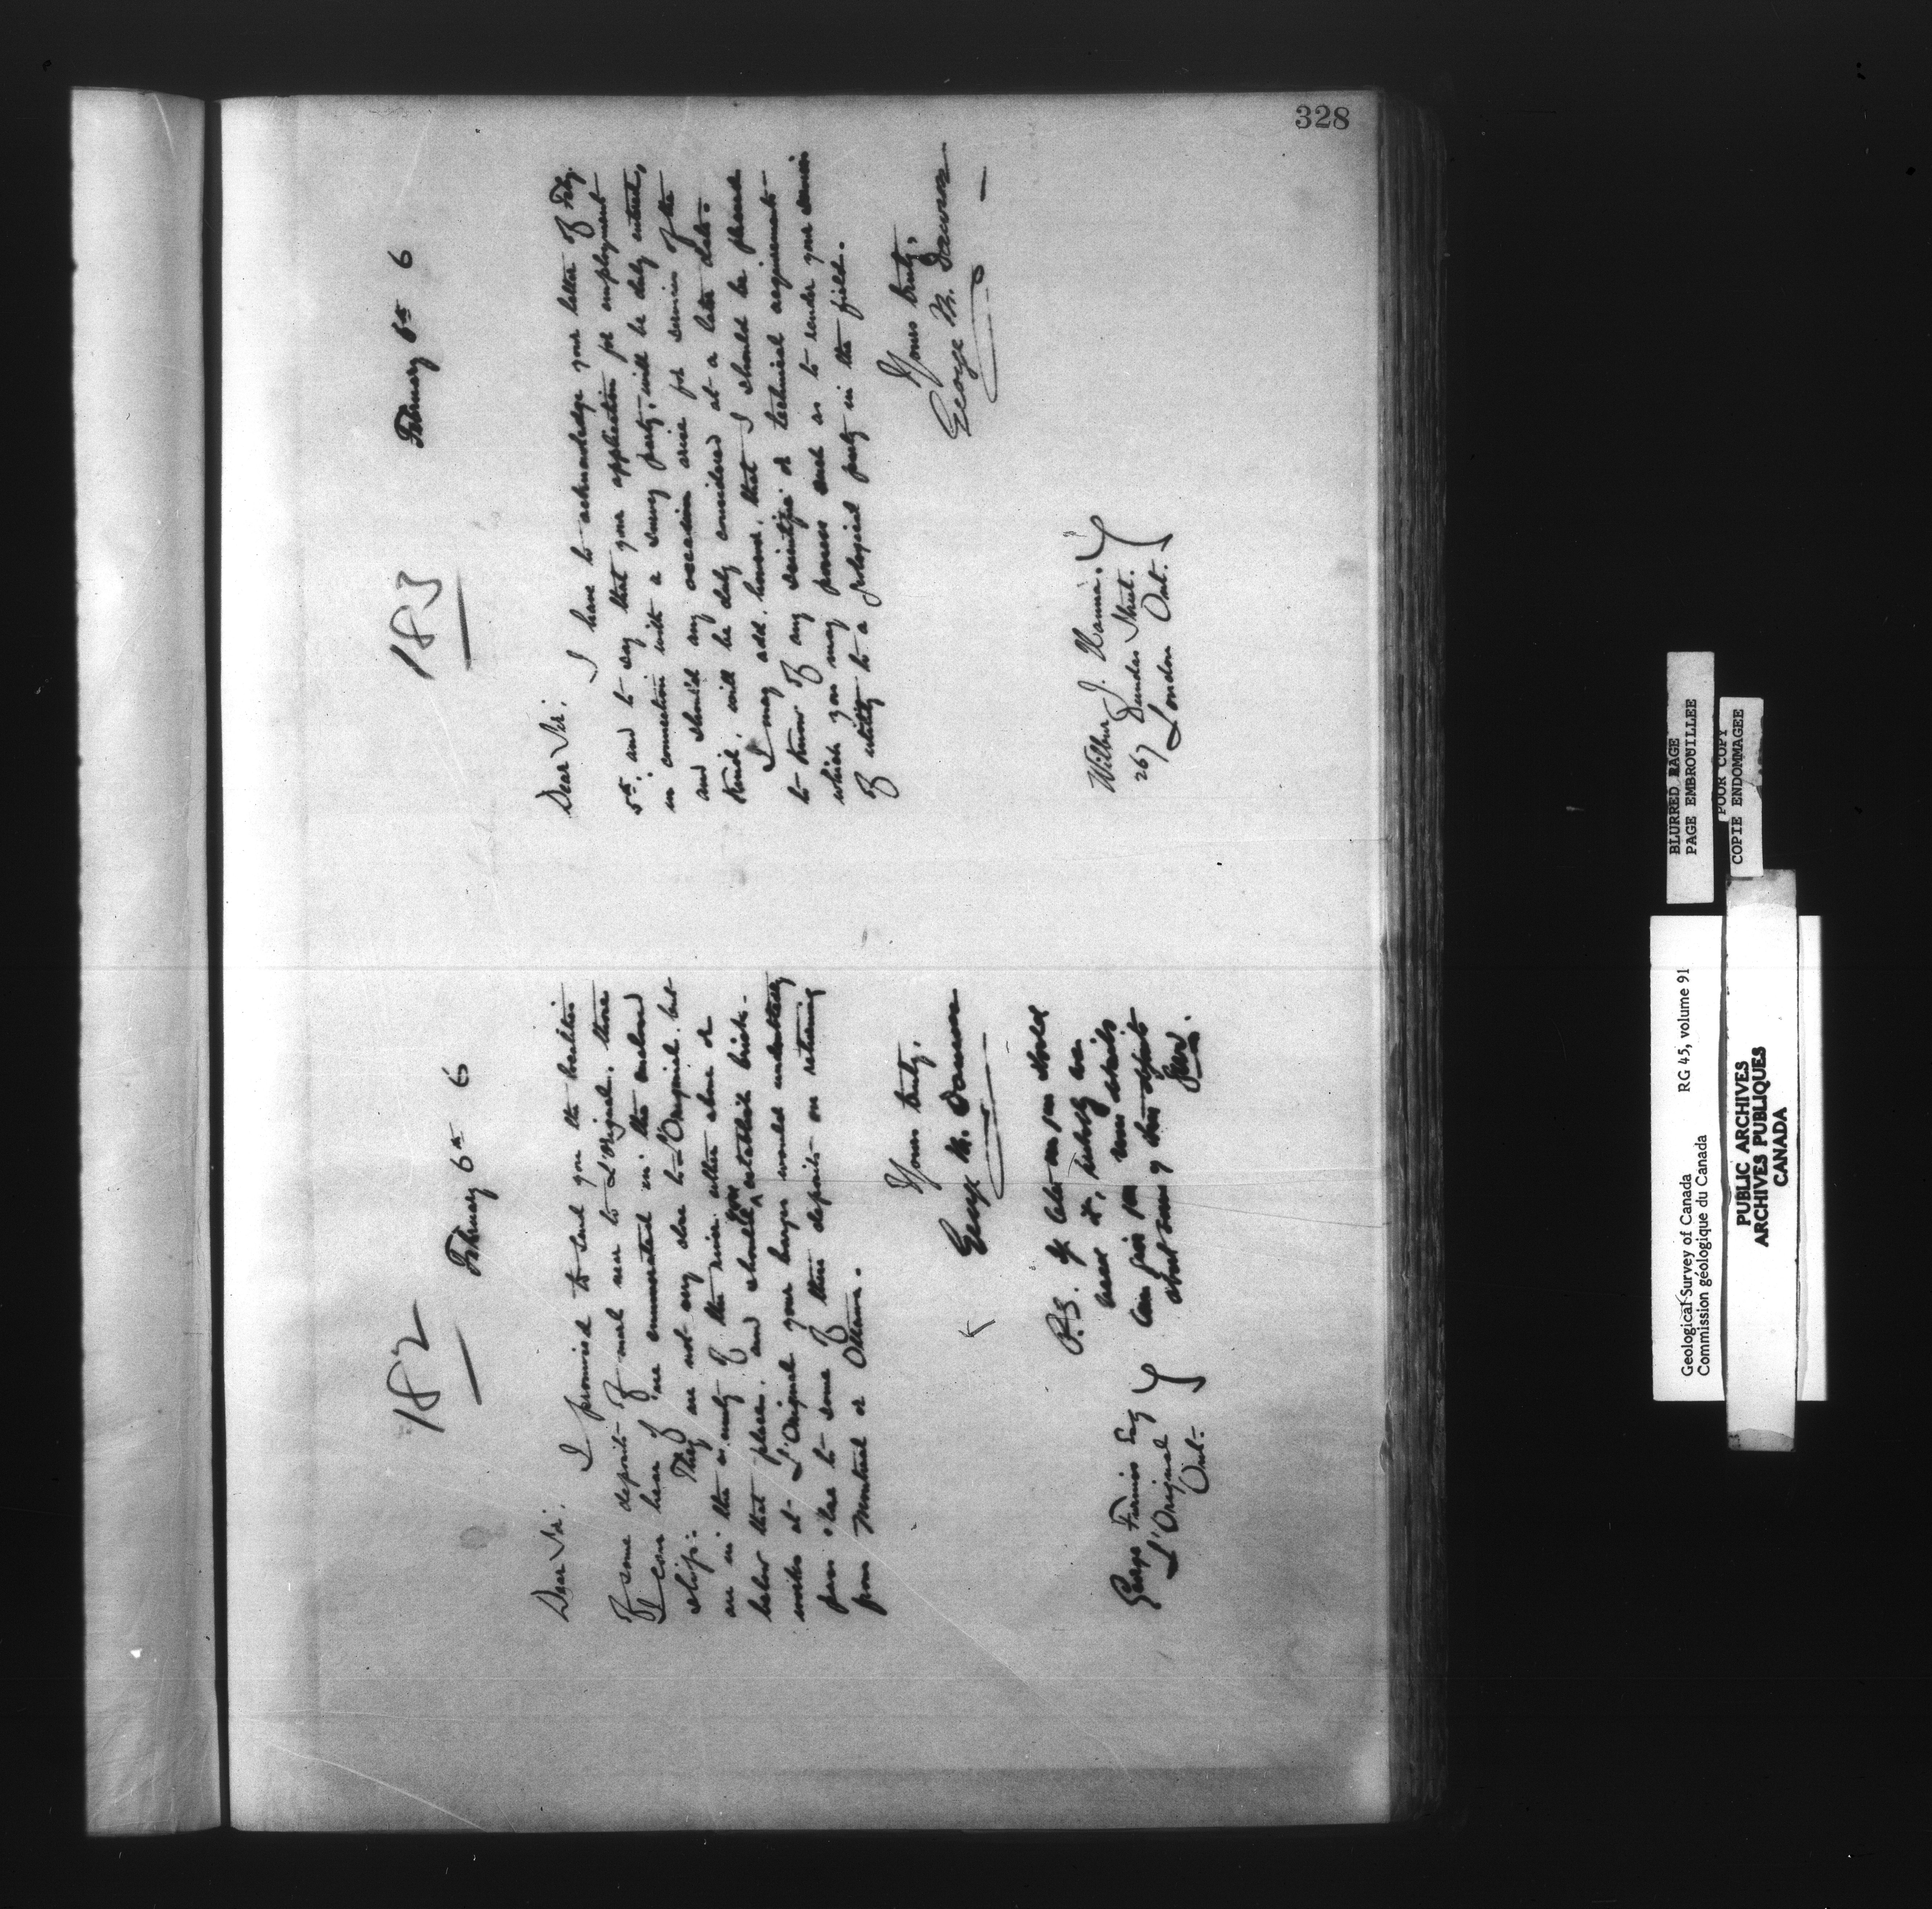 328
182
February 6th 6
Dear Sir.
I promised to send you the localities
of some deposits of marl near to L'Orignal. Those
I can hear of are enumerated in the enclosed
slip. They are not any close to L'Orignal but
are in the vicinity of the river either above or
below that place. and should you establish brick-
works at L'Orignal your barges would undoubtedly
pass close to some of these deposits on returning
from Montreal or Ottawa.
Yours truly,
George M. Dawson
P.S. If later on you should
need it, probably we
can give you more details
about some of these deposits
GMD.
George Esq
L'Orignal
Ont.
183
February 6th 6
Dear Sir.
I have to acknowledge your letter of Feby.
5th. and to say that your application for employment
in connection with a survey party, will be duly entered,
and should any occasion arise for services of the
kind, will be duly considered at a later date.
I may add, however, that I should be pleased
to know of any scientific or technical acquirements
which you may possess such as to render your services
of utility to a geological party in the field.
Yours truly,
George M. Dawson
Wilbur J.
267 Dundas Street.
London Ont.
BLURRED PAGE
PAGE EMBROUILLEE
POOR COPY
COPIE ENDOMMAGEE
Geological Survey of Canada RG 45, volume 91
Commission géologique du Canada
PUBLIC ARCHIVES
ARCHIVES PUBLIQUES
CANADA